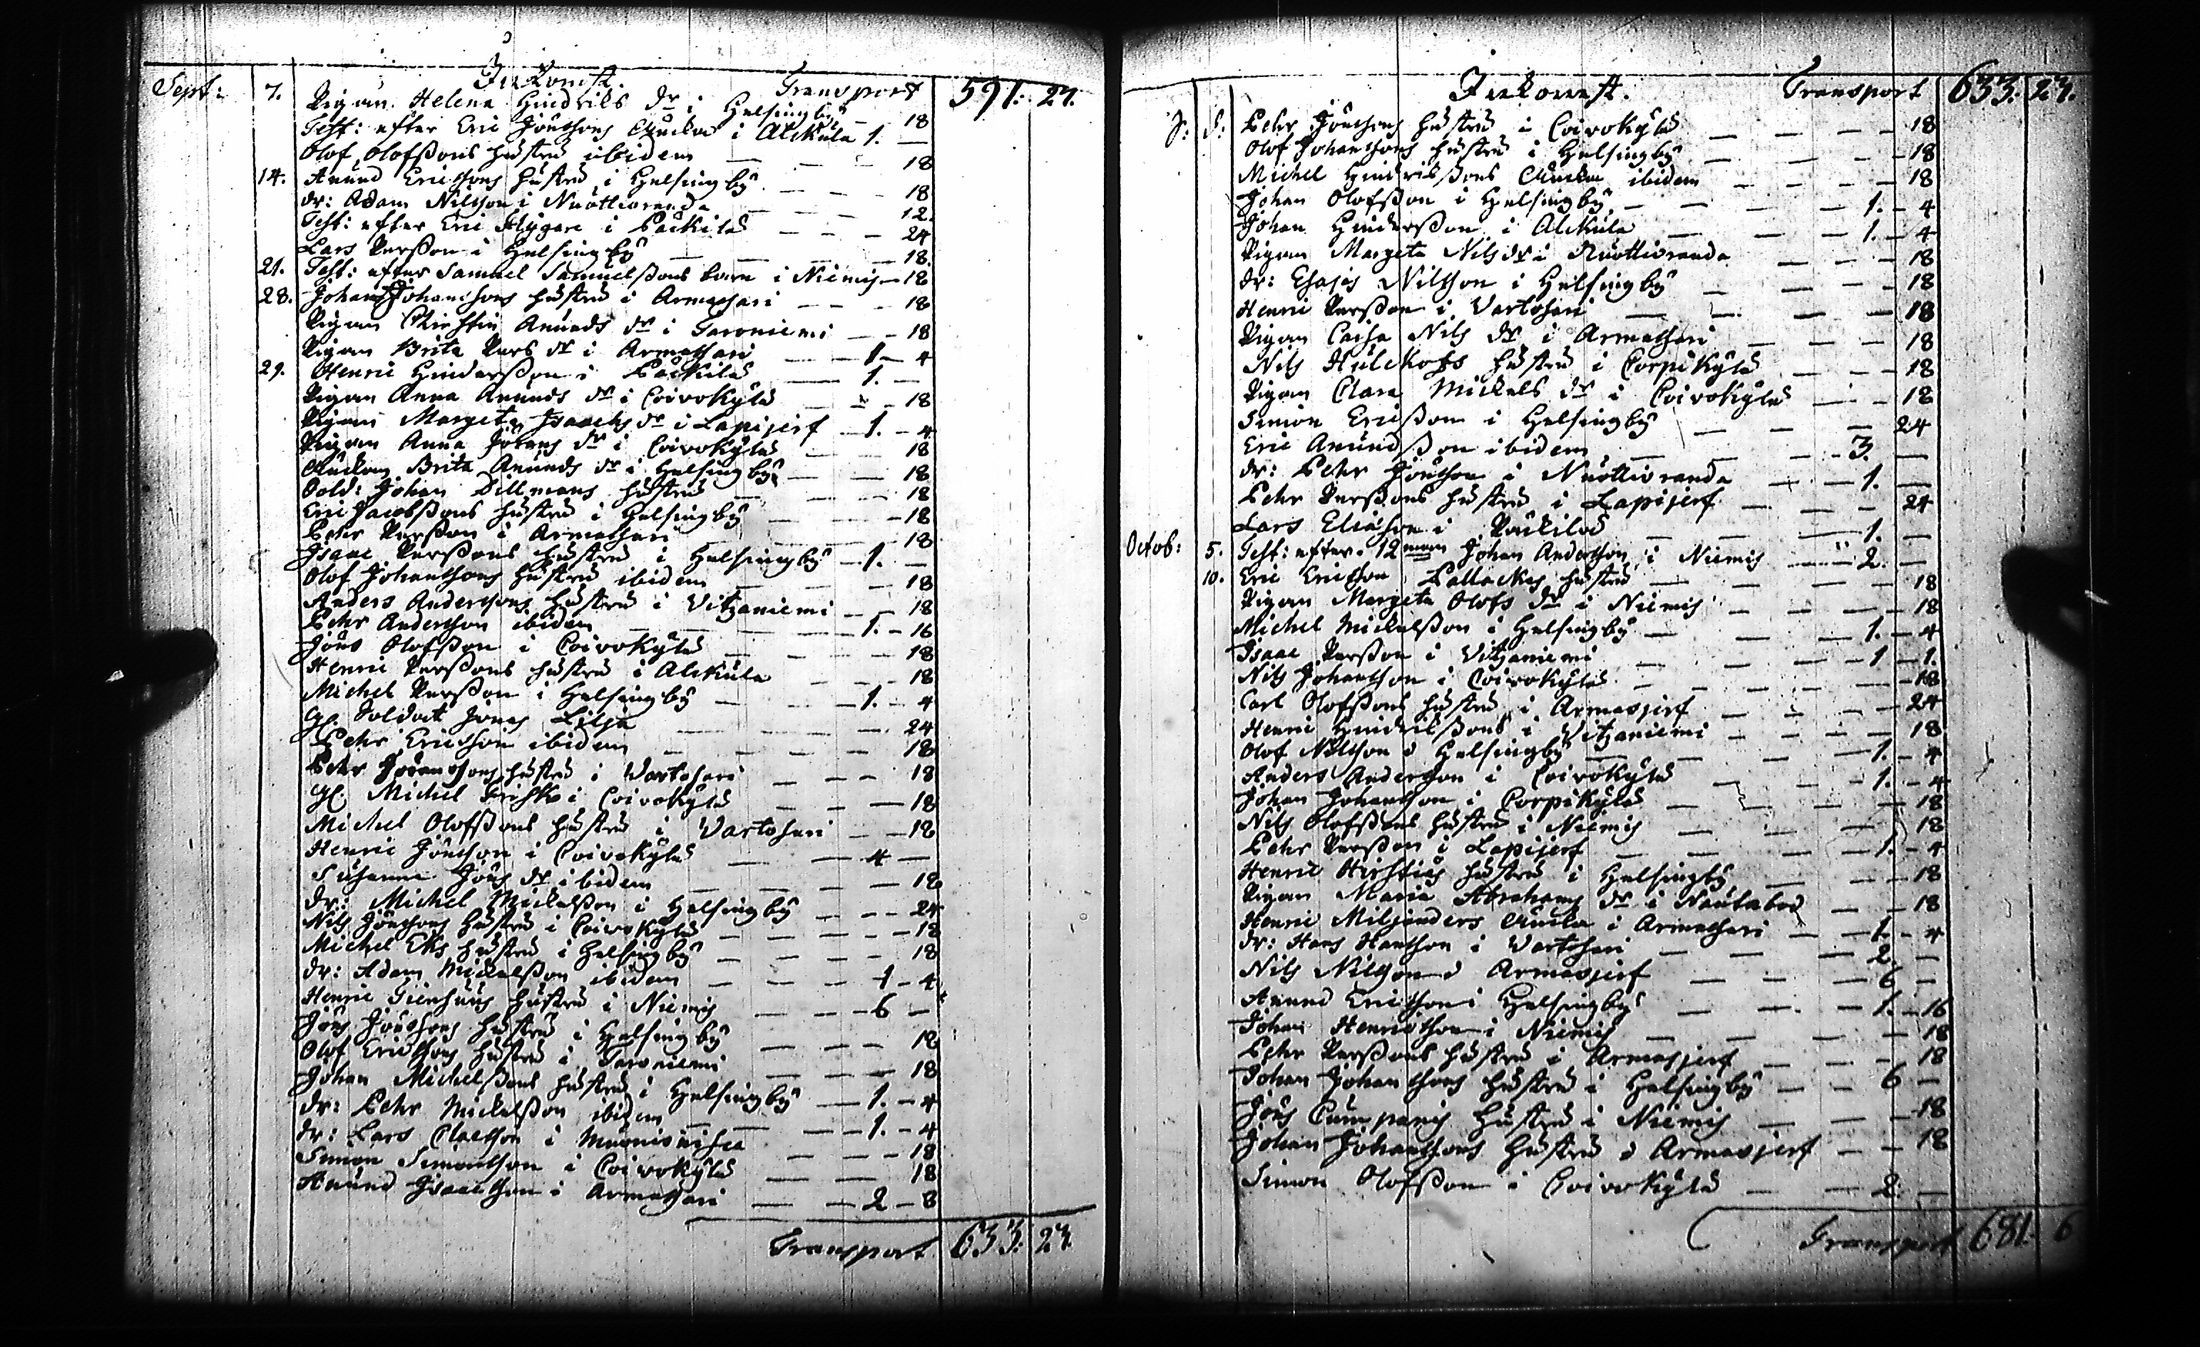 Inkomst. Transport 591: 27.
Sept: 7. Pigan Helena Hindrichs dr i Helsingbÿ — 18
Test: efter Eric Jönssons Änckia i Alckula 1. —
Olof Olofßons hustru ibidem — — 18
14. Anund Ericssons hustru i Helsingbÿ — — 18
dr: Adam Nilsson i Nuottioranda — — 12.
Test: efter Eric Flÿgare i Päckilä — — 24
Lars Perßon i Helsingbÿ — — 18.
21. Test: efter Samuel Samuelßons barn i Niemis — 18
28. Johan Johanssons hustru i Armassari — — 18
Pigan Christin Anunds dr i Taroniemi — 18
Pigan Brita Pers dr i Armassari — 1. — 4
29. Henric Hinderßon i Päckilä — 1. —
Pigan Anna Anunds dr i Coivokÿlä — 18
Pigan Margeta Isaachs dr i Lapijerf — 1. — 4
Pigan Anna Johans dr i Coivokÿlä — 18
Änckan Brita Anunds dr i Helsingbÿ — 18
Sold: Johan Dillmans hustru — — 18
Eric Jacobßons hustru i Helsingbÿ — — 18
Pehr Perßon i Armassari — — 18
Isaac Perßons hustru i Helsingbÿ — 1. —
Olof Johanssons hustru ibidem — — 18
Anders Anderssons hustru i Vitzaniemi — 18
Pehr Andersson ibidem — 1. — 16
Jöns Olofßon i Coivokÿlä — — 18
Henric Perßons hustru i Alckula — — 18
Michel Perßon i Helsingbÿ — 1. — 4
Gl. Soldat Jonas Lilja — — 24
Pehr Ericsson ibidem — — 18
Pehr Johanssons hustru i Vartosari — — 18
Gl. Michel i Coivokÿlä — 18
Michel Olofßons hustru i Vartosari — — 18
Henric Jönsson i Coivokÿlä — — 4 —
Susanna Jöns dr ibidem — — 18
dr: Michel Mickelßon i Helsingbÿ — — 24
Nils Jönssons hustru i Coivokÿlä — — 18
Michel Eks hustru i Helsingbÿ — — 18
dr: Adam Mickelßon ibidem — — 1 — 4
Henric hustru i Niemis — — 6 —
Jöns Jönssons hustru i Helsingbÿ — — 18
Olof Ericssons hustru i Taroniemi — — 18
Johan Michelßons hustru i Helsingbÿ — 1. — 4
dr: Pehr Mickelßon ibidem — 1. — 4
dr: Lars Claesson i — — 18
Simon Simonsson i Coivokÿlä — — 18
Anund Isaacsson i Armassari — — 2 — 8
Transport 633: 27.
Inkomst. Transport 633. 27.
Pehr Jönssons hustru i Coivokÿlä — — 18
Olof Johanssons hustru i Helsingbÿ — — 18
Michel Hindrichßons Änckia ibidem — — 18
Johan Olofßon i Helsingbÿ — 1. — 4
Johan Hinderßon i Alckula — 1. — 4
Pigan Margeta Nils dr i Nuottioranda — 18
dr: Esaias Nilsson i Helsingbÿ — — 18
Henric Perßon i Vartosari — — 18
Pigan Caisa Nils dr i Armassari — — 18
Nils Hulckofs hustru i Corpikÿlä — — 18
Pigan Clara Mickels dr i Coivokÿlä — — 18
Simon Ericßon i Helsingbÿ — — 24
Eric Anundßon ibidem — — 3. —
dr: Pehr Jönsson i Nuottioranda — 1. —
Pehr Perßons hustru i Lapijerf — — 24
Lars Eliasson i Päckilä — 1. —
Octob: 5. Test: efter 12man Johan Andersson i Niemis — 2. —
10. Eric Ericsson hustru — — 18
Pigan Margeta Olofs dr i Niemis — — 18
Michel Mickelßon i Helsingbÿ — 1. — 4
Isaac Perßon i Vitzaniemi — 1 — 1.
Nils Johansson i Coivokÿlä — — 18
Carl Olofßons hustru i Armasjerf — — 24
Henric Hindrichßons i Vitzaniemi — — 18
Olof Nilsson i Helsingbÿ — 1. — 4
Anders Andersson i Coivokÿlä — 1. — 4
Johan Johansson i Corpikÿlä — — 18
Nils Olofßons hustru i Niemis — — 18
Pehr Perßon i Lapijerf — 1. — 4
Henric hustru i Helsingbÿ — — 18
Pigan Maria Abrahams dr i — — 18
Henric Änckia i Armassari — 1. — 4
dr: Hans Hansson i Vartosari — 2. —
Nils Nilsson i Armasjerf — — 6 —
Anund Ericsson i Helsingbÿ — 1. — 16
Johan Henricsson i Niemis — — 18
Pehr Perßons hustru i Armasjerf — — 18
Johan Johanssons hustru i Helsingbÿ — 6 —
Jöns hustru i Niemis — — 18
Johan Johanssons hustru i Armasjerf — — 18
Simon Olofßon i Coivokÿlä — — 2. —
Transport 681. 6